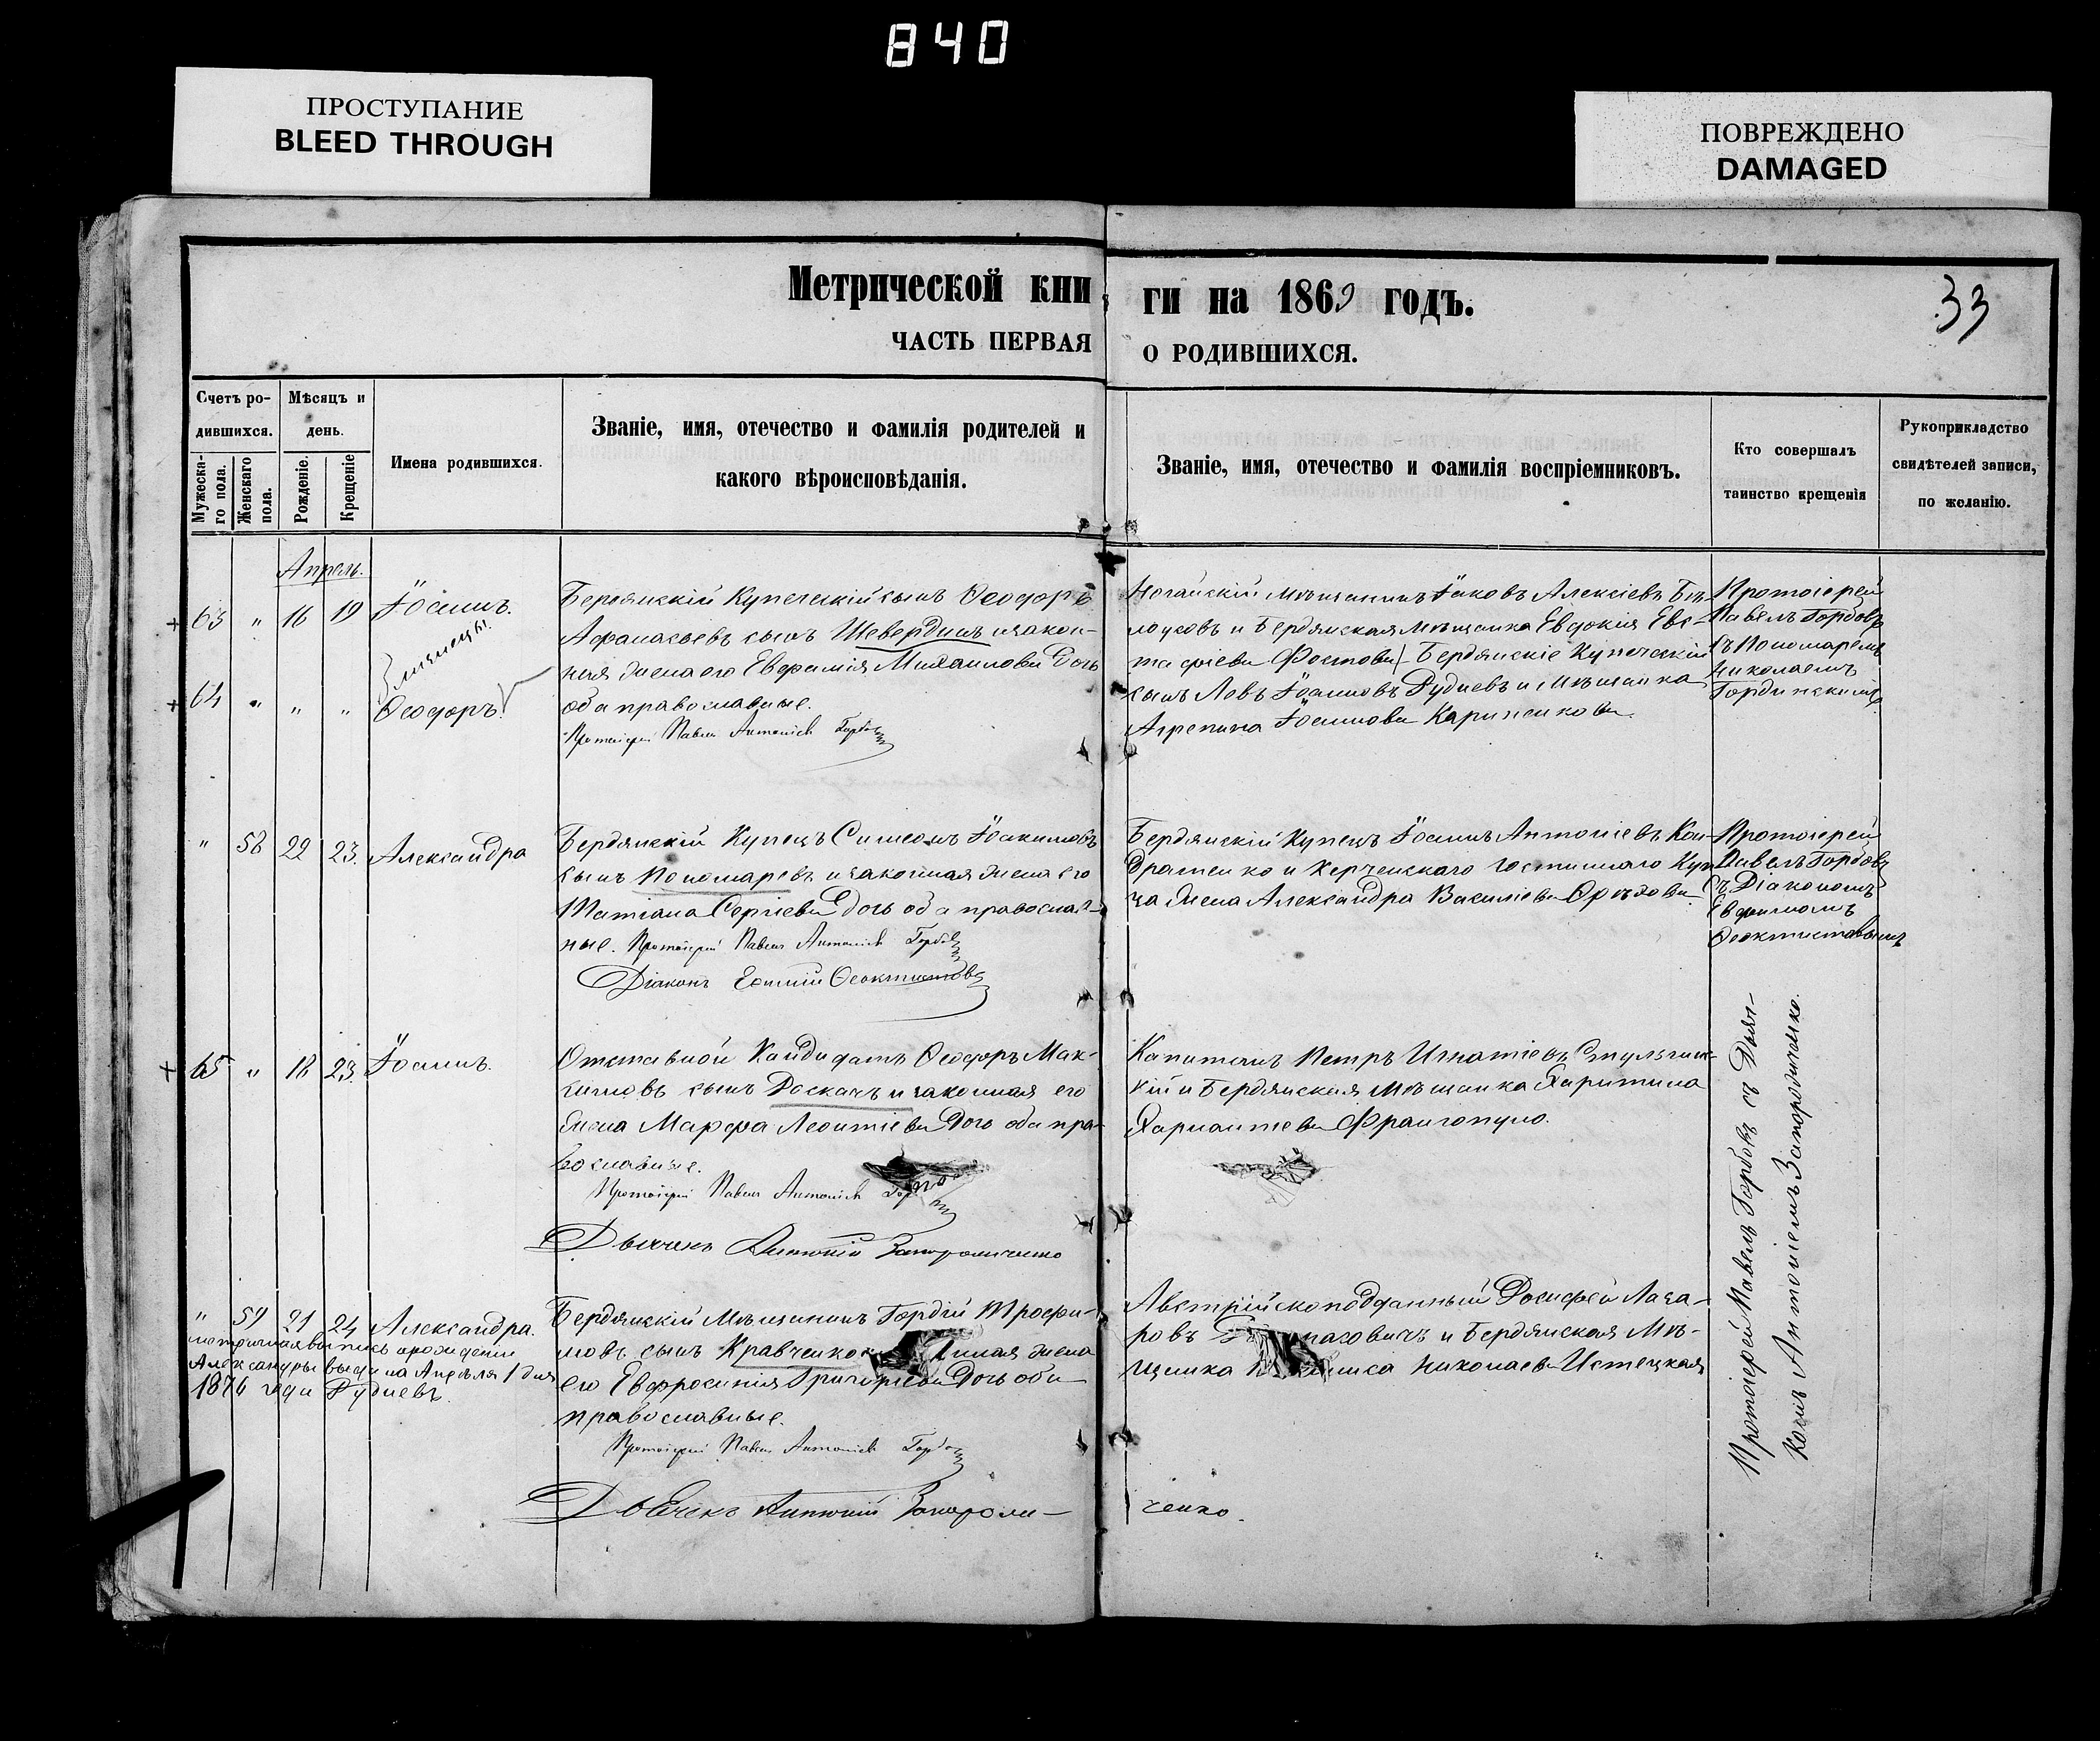 840
ПРОСТУПАНИЕ
BLEED THROUGH
ПОВРЕЖДЕНО
DAMAGED
Метрической кни ги на 1869 годъ.
33
ЧАСТЬ ПЕРВАЯ О РОДИВШИХСЯ.
Счетъ ро-
дившихся.
Мужеска-
го пола.
Женскаго
пола.
Мѣсяцъ и
день.
Рожденіе.
Крещеніе
Имена родившихся.
Званіе, имя, отечество и фамилія родителей и
какого вѣроисповѣданія.
Званіе, имя, отечество и фамилія воспріемниковъ.
Кто совершалъ
таинство крещенія
Рукоприкладство
свидѣтелей записи,
по желанію.
Апрель.
63 " 16 19 Іоаннъ.
близнецы
64 " " " Ѳеодоръ.
Бердянскій Купеческій сынъ Ѳеодоръ
Афанасьевъ сынъ Шевердинъ и закон-
ная жена его Евфимія Михаилова дочь
оба православные.
Протоіерей Павелъ Антоніевъ Горбовъ
Ногайскій мѣщанинъ Іаковъ Алексіевъ Бѣ-
лоусовъ и Бердянская мѣщанка Евдокія Евс-
тафіева Фостова / Бердянскіе Купеческій
сынъ Левъ Іоанновъ Рудневъ и мѣщанка
Агрепина Іоаннова
Протоіерей
Павелъ Горбовъ
съ Пономаремъ
Николаемъ
" 58 22 23 Александра
Бердянскій Купецъ Симеонъ Іоакимовъ
сынъ Пономаревъ и законная жена его
Татіана Сергіева дочь оба православ-
ные. Протоіерей Павелъ Антоніевъ Горбовъ
Діаконъ Ефимій Ѳеоктистовъ
Бердянскій Купецъ Іоаннъ Антоніевъ Кон-
дратенко и Керченскаго Гостиннаго Куп-
ца жена Александра Василіева
Протоіерей
Павелъ Горбовъ
съ Діакономъ
Евфиміомъ
Ѳеоктистовымъ
65 " 18 23 Іоаннъ.
Отставной Кандидатъ Ѳеодоръ Мак-
симовъ сынъ Доскачъ и законная его
жена Марфа Леонтіева дочь оба пра-
вославные.
Протоіерей Павелъ Антоніевъ
Дьячекъ Антоній
Капитанъ Петръ Игнатіевъ
кій и Бердянская мѣщанка Харитина
Харлантіева Франгопуло.
Протоіерей Павелъ Горбовъ съ Дьяч-
комъ Антоніемъ
" 59 21 24 Александра.
метрическая выпись о рожденіи
Александры выдана Апрѣля 1 дня
1876 года Рудневъ.
Бердянскій Мѣщанинъ Гордій Трофи-
мовъ сынъ Кравченко жена
его Евфросинія Григоріева дочь оба
православные.
Протоіерей Павелъ Антоніевъ Горбовъ
Дьячекъ Антоній
Австрійскоподданный Досифей Лаза-
ровъ и Бердянская Мѣ-
щанка Николаева Истецкая
ченко.